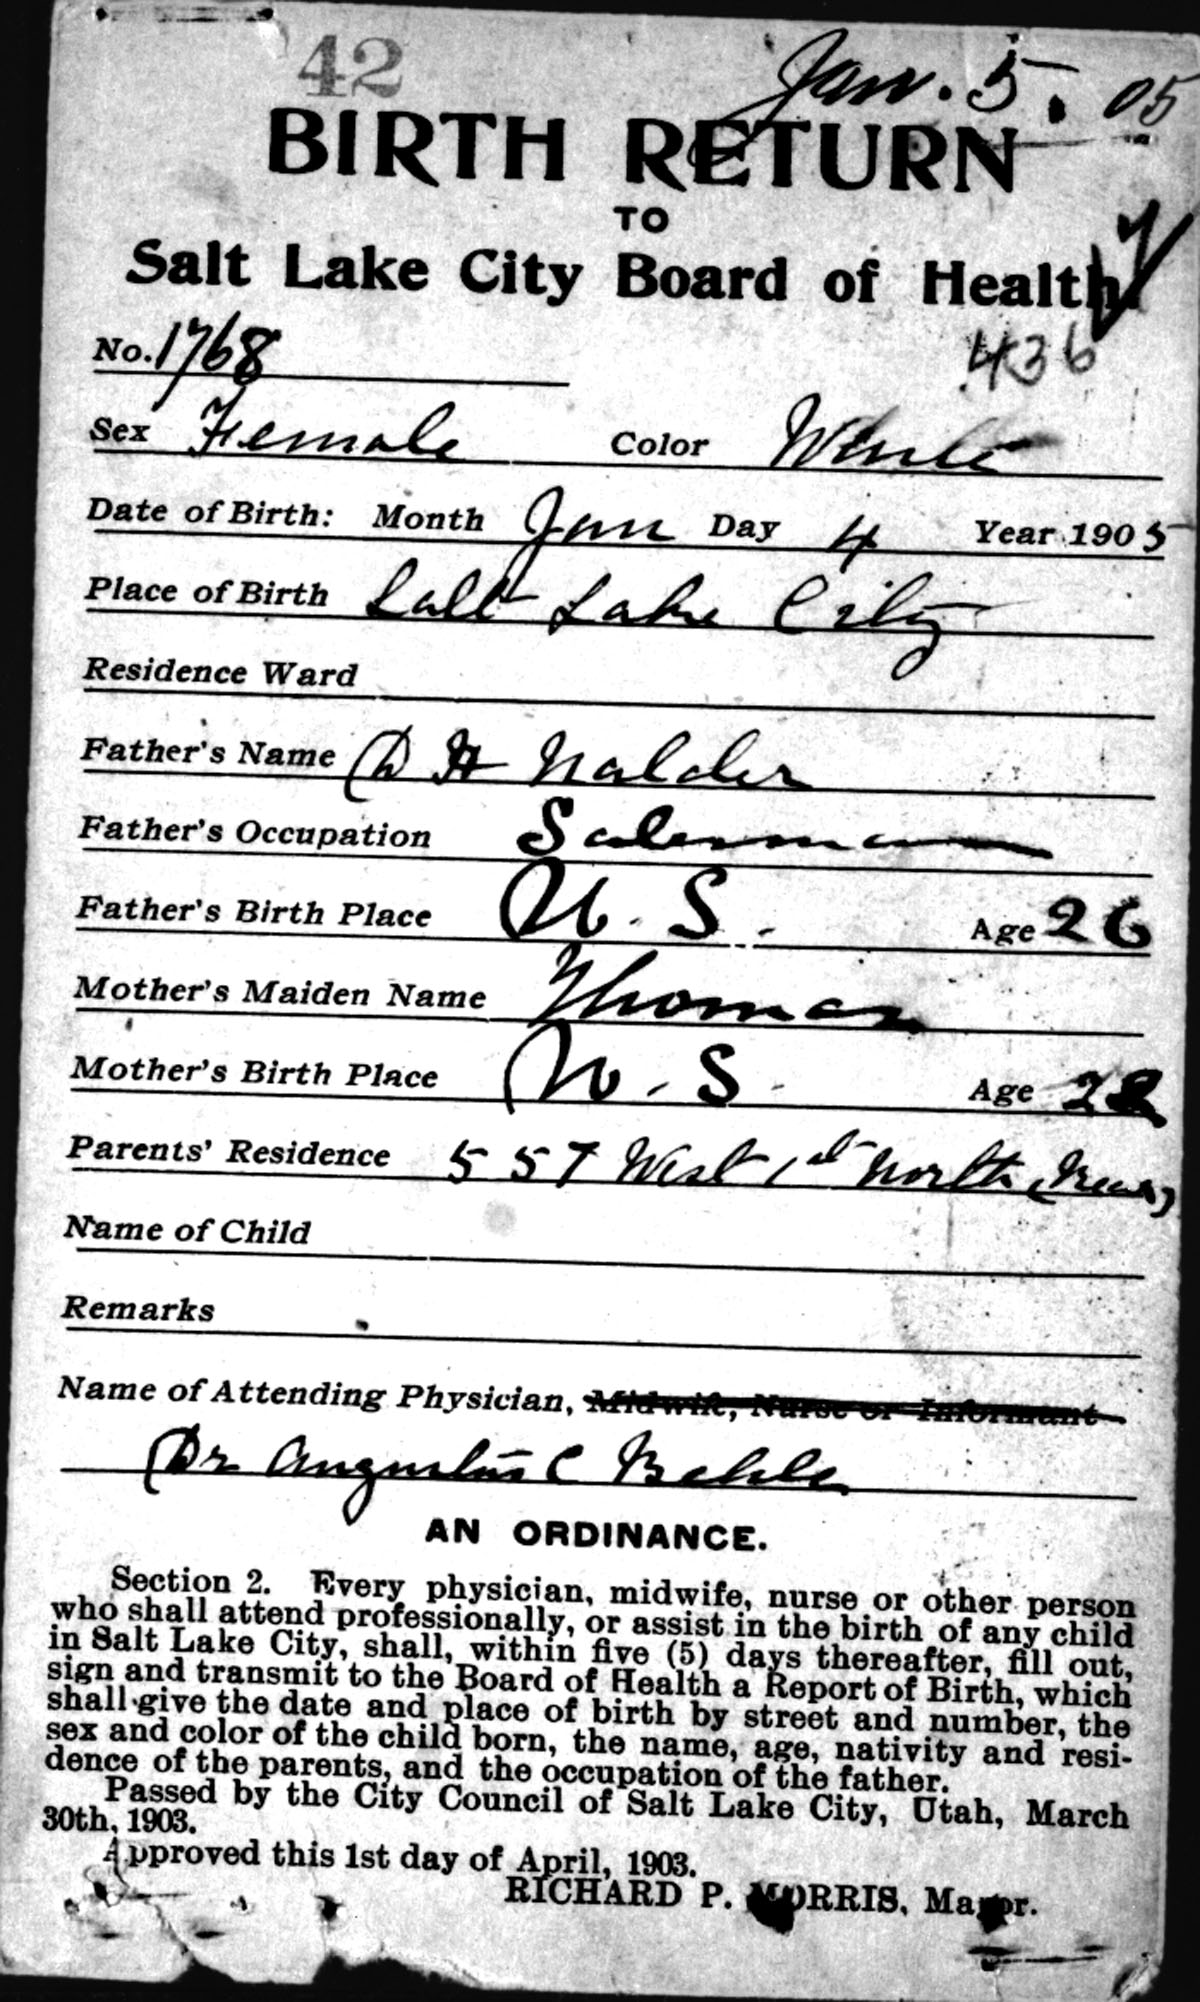 42
Jan. 5. 05
BIRTH RETURN
TO
Salt Lake City Board of Health.
No. 1768
436
Sex Female Color White
Date of Birth: Month Jan Day 4 Year 1905
Place of Birth Salt Lake City
Residence Ward
Father's Name D H Nalder
Father's Occupation Salesman
Father's Birth Place U. S. Age 26
Mother's Maiden Name Thomas
Mother's Birth Place U. S. Age
Parents' Residence 557 West 1st North
Name of Child
Remarks
Name of Attending Physician, Midwife, Nurse or Informant
Dr Augustus C Behle
AN ORDINANCE.
Section 2. Every physician, midwife, nurse or other person
who shall attend professionally, or assist in the birth of any child
in Salt Lake City, shall, within five (5) days thereafter, fill out,
sign and transmit to the Board of Health a Report of Birth, which
shall give the date and place of birth by street and number, the
sex and color of the child born, the name, age, nativity and resi-
dence of the parents, and the occupation of the father.
Passed by the City Council of Salt Lake City, Utah, March
30th, 1903.
Approved this 1st day of April, 1903.
RICHARD P. MORRIS, Mayor.